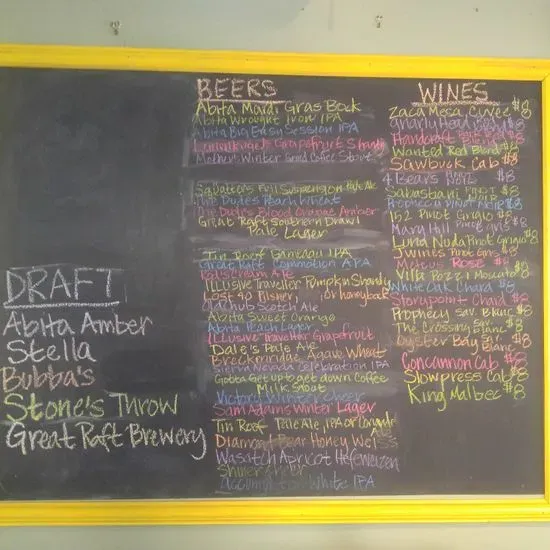 DRAFT
Abita Amber
Stella
Bubba's
Stone's Throw
Great Raft Brewery
BEERS
Abita Mardi Gras Bock
Abita Wrought Iron IPA
Abita Big Easy Session IPA
Grapefruit Shandy
Winter Coffee Stout
Squatters Full Suspension Pale Ale
The Dudes Peach Wheat
The Dude's Blood Orange Amber
Great Raft Southern Drawl
Pale Lager
Tin Roof IPA
Great Raft Commotion APA
Ale
Illusive Traveller Pumpkin Shandy
Lost 40 Pilsner, or honeyback
Old Chub Scotch Ale
Abita Sweet Orange
Abita Peach Lager
Illusive Traveller Grapefruit
Dale's Pale Ale
Breckenridge Agave Wheat
Sierra Nevada Celebration IPA
Gotta Get up to get down Coffee
Milk Stout
Victory Winter Cheer
Sam Adams Winter Lager
Tin Roof Pale Ale, IPA or
Diamond Bear Honey
Wasatch Apricot Hefeweizen
Shiner Cheer
White IPA
WINES
Zaca Mesa Cuvee $8
Gnarly Head $8
Handcraft $8
Wanted Red Blend $8
Sawbuck Cab $8
4 Bears Pinot Noir $8
Sabastiani Pinot Noir $8
Prophecy Pinot Noir $8
152 Pinot Grigio $8
Mary Hill Pinot Gris $8
Luna Nuda Pinot Grigio $8
Jwines Pinot Gris $8
Rose $8
Villa Pozzi Moscato $8
White Oak Chard $8
Storypoint Chard $8
Prophecy Sav. Blanc $8
The Crossing Sav. Blanc $8
Oyster Bay Sav. Blanc $8
Concannon Cab $8
Slowpress Cab $8
King Malbec $8